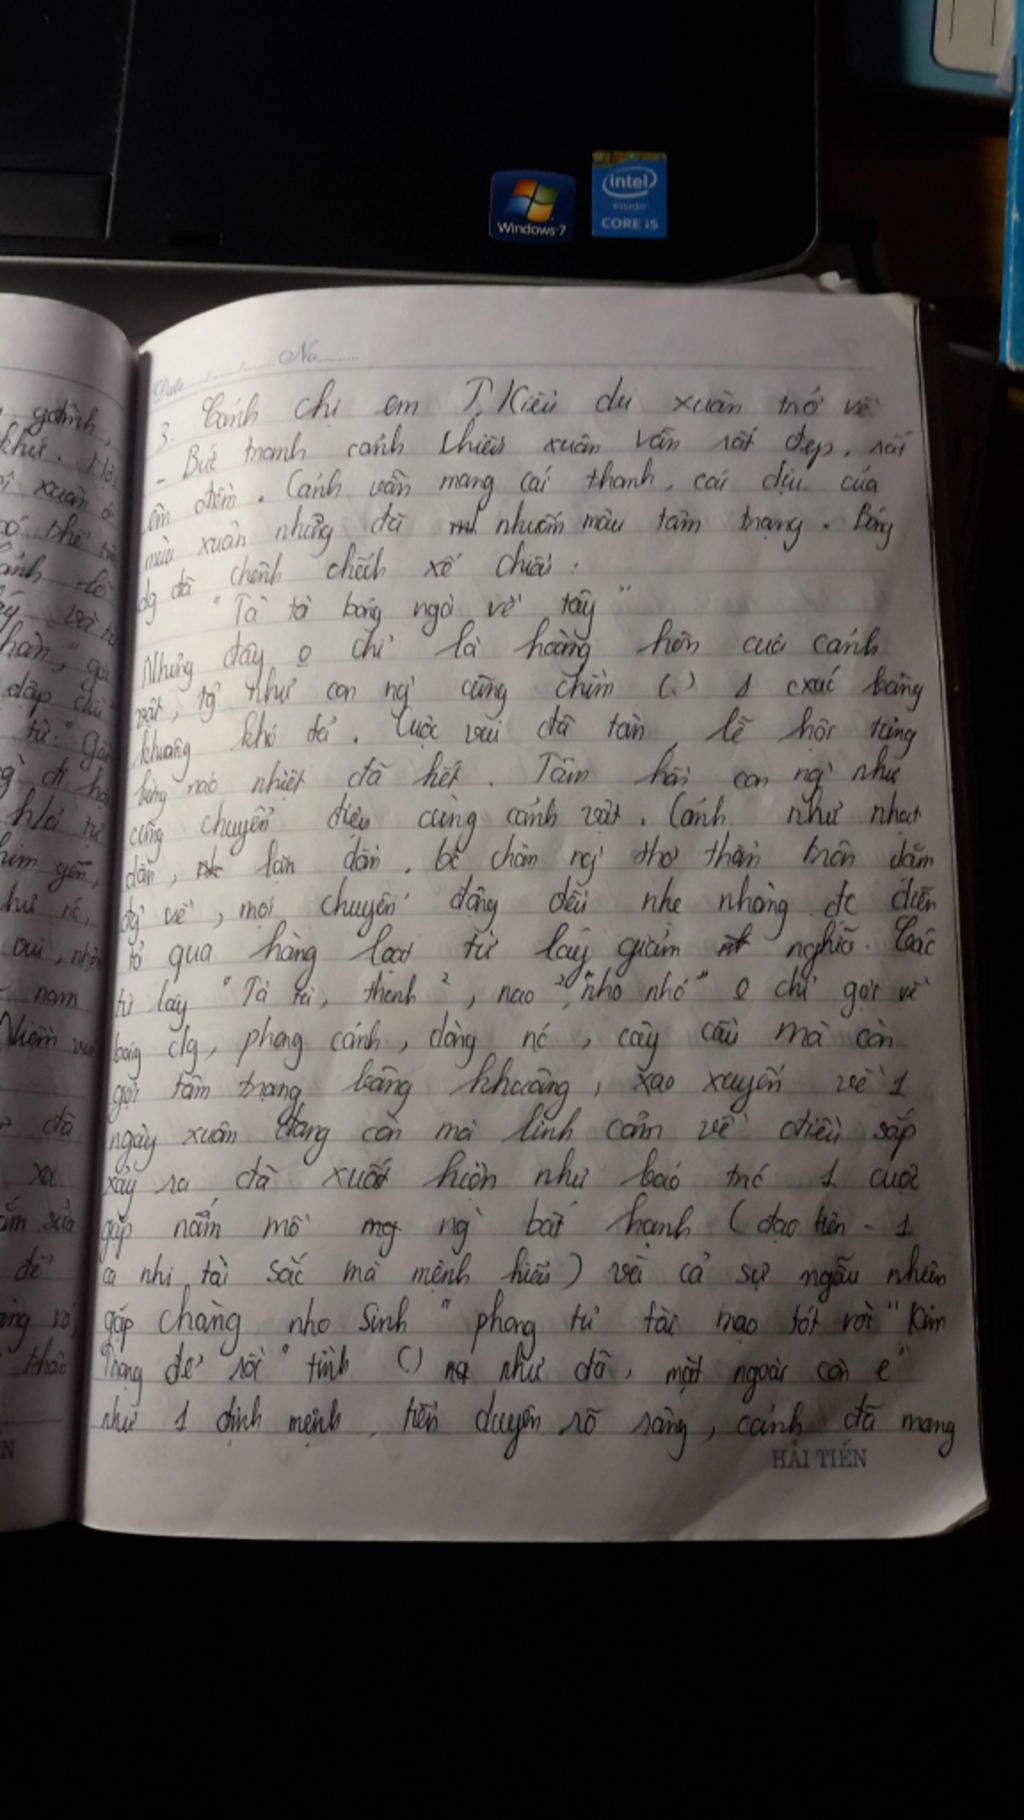 intel
inside
CORE i5
Windows 7
Date............ No..........
3. Cảnh chị em T.Kiều du xuân trở về
- Bức tranh cảnh chiều xuân vẫn rất đẹp, rất
êm đềm. Cảnh vẫn mang cái thanh, cái dịu của
mùa xuân nhưng đã nhuốm màu tâm trạng. Bóng
dg đã chênh chếch xế chiều:
"Tà tà bóng ngả về tây"
Nhưng đây o chỉ là hoàng hôn của cảnh
vật, tg như con ng` cũng chìm (.) 1 cxúc bâng
khuâng khó tả. Cuộc vui đã tàn, lễ hội tưng
bừng náo nhiệt đã hết. Tâm hồn con ng` như
cũng chuyển điệu cùng cảnh vật. Cảnh như nhạt
dần, lặn dần, bc chân ng` thơ thẩn trên dặm
dg về, mọi chuyển động đều nhẹ nhàng đc diễn
tả qua hàng loạt từ láy giảm nghĩa. Các
từ láy "Tà tà, thanh², nao², nho nhỏ" o chỉ gợi về
bóng dg, phong cảnh, dòng nc, cây cầu mà còn
gợi tâm trạng bâng khuâng, xao xuyến về 1
ngày xuân đang còn mà linh cảm về điều sắp
xảy ra đã xuất hiện như báo trc 1 cuộc
gặp nấm mồ ng` bất hạnh (đạm tiên - 1
ca nhi tài sắc mà mệnh hiểu) và cả sự ngẫu nhiên
gặp chàng nho sinh "phong tư tài mạo tót vời" Kim
Trọng để rồi "tình (.) như đã, mặt ngoài còn e"
như 1 định mệnh, tiền duyên rõ ràng, cảnh đã mang
HẢI TIẾN